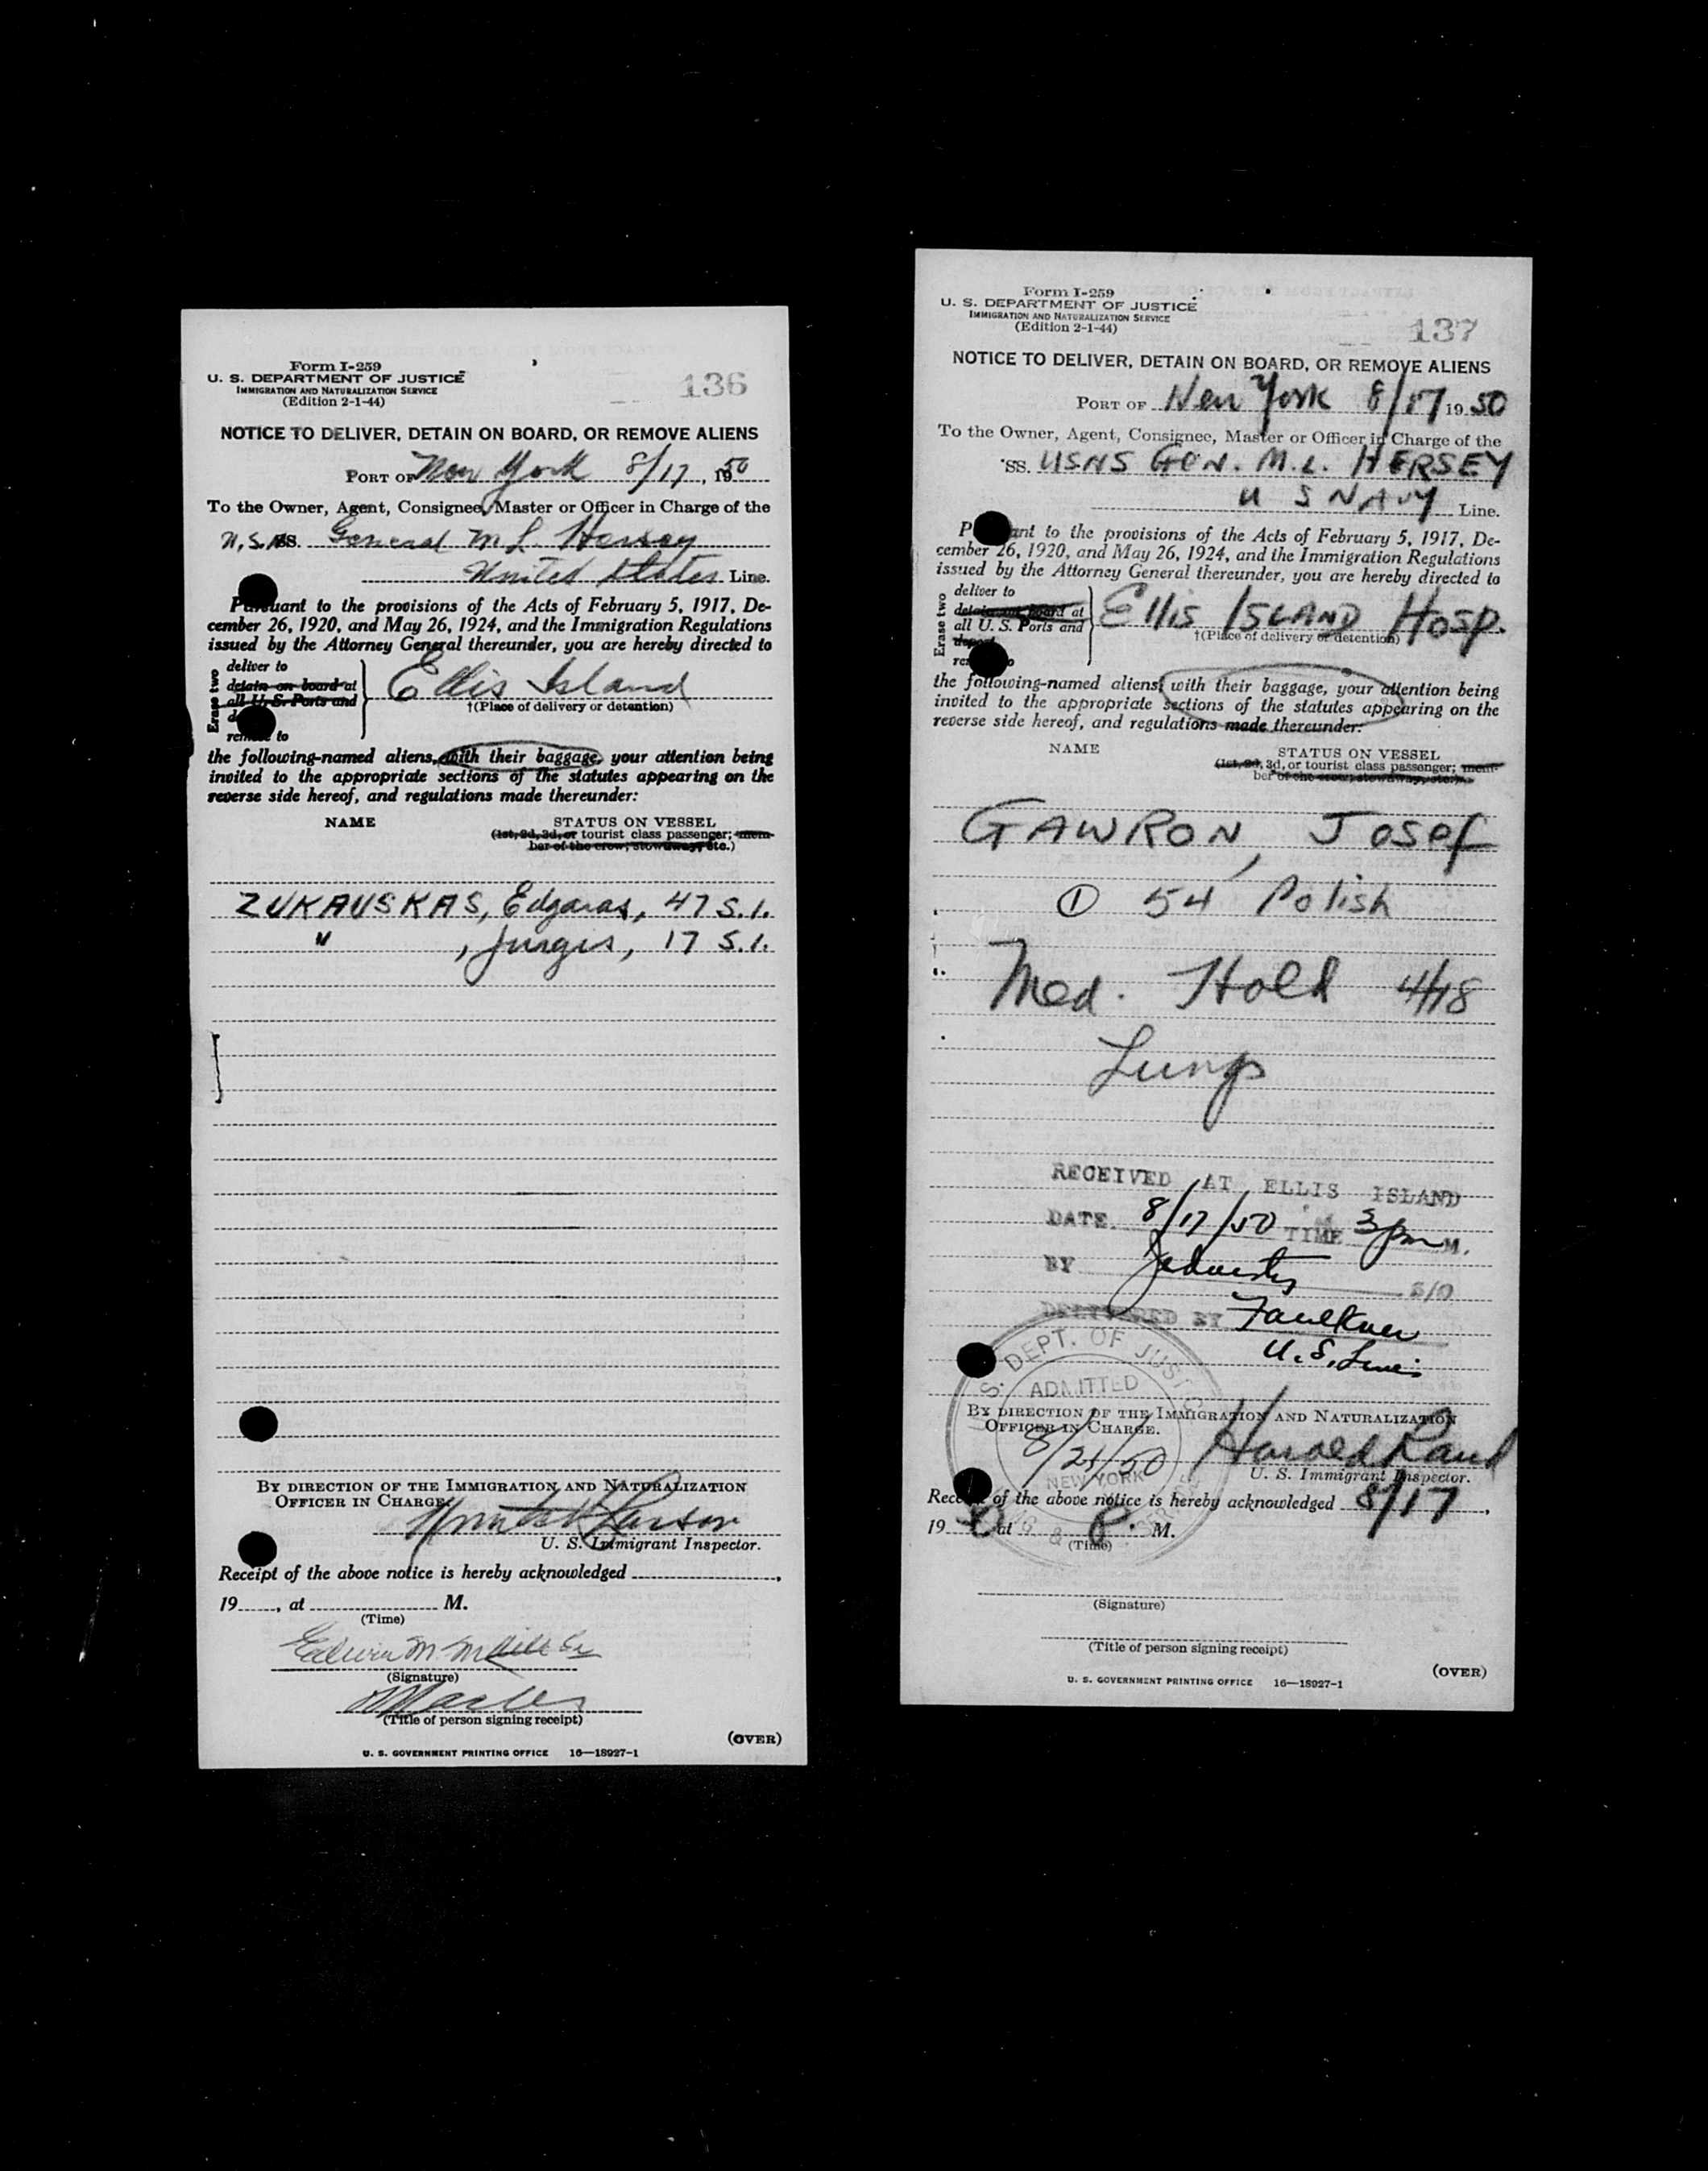 Form I-259
U. S. DEPARTMENT OF JUSTICE
IMMIGRATION AND NATURALIZATION SERVICE
(Edition 2-1-44)
136
NOTICE TO DELIVER, DETAIN ON BOARD, OR REMOVE ALIENS
PORT OF New York 8/17, 1950
To the Owner, Agent, Consignee, Master or Officer in Charge of the
U.S.N.SS. General M L. Hersey
United States Line.
Pursuant to the provisions of the Acts of February 5, 1917, De-
cember 26, 1920, and May 26, 1924, and the Immigration Regulations
issued by the Attorney General thereunder, you are hereby directed to
Erase two
deliver to
detain on board at
all U. S. Ports and
remove to
Ellis Island
†(Place of delivery or detention)
the following-named aliens, with their baggage, your attention being
invited to the appropriate sections of the statutes appearing on the
reverse side hereof, and regulations made thereunder:
NAME STATUS ON VESSEL
(1st, 2d, 3d, or tourist class passenger; mem-
ber of the crew; stowaway, etc.)
ZUKAUSKAS, Edgaras, 47 S.I.
" , Jurgis, 17 S.I.
BY DIRECTION OF THE IMMIGRATION AND NATURALIZATION
OFFICER IN CHARGE.
U. S. Immigrant Inspector.
Receipt of the above notice is hereby acknowledged
19, at M.
(Time)
Edwin M.
(Signature)
(Title of person signing receipt)
(OVER)
U. S. GOVERNMENT PRINTING OFFICE 16—18927-1
Form I-259
U. S. DEPARTMENT OF JUSTICE
IMMIGRATION AND NATURALIZATION SERVICE
(Edition 2-1-44)
137
NOTICE TO DELIVER, DETAIN ON BOARD, OR REMOVE ALIENS
PORT OF New York 8/17 1950
To the Owner, Agent, Consignee, Master or Officer in Charge of the
SS. USNS GEN. M.L. HERSEY
U S NAVY Line.
Pursuant to the provisions of the Acts of February 5, 1917, De-
cember 26, 1920, and May 26, 1924, and the Immigration Regulations
issued by the Attorney General thereunder, you are hereby directed to
Erase two
deliver to
detain on board at
all U. S. Ports and
deport
remove to
Ellis ISLAND Hosp.
†(Place of delivery or detention)
the following-named aliens, with their baggage, your attention being
invited to the appropriate sections of the statutes appearing on the
reverse side hereof, and regulations made thereunder:
NAME STATUS ON VESSEL
(1st, 2d, 3d, or tourist class passenger; mem-
ber of the crew; stowaway, etc.)
GAWRON, Josef
① 54 Polish
Med. Hold 4/18
Lungs
RECEIVED AT ELLIS ISLAND
DATE 8/17/50 TIME 3pm M.
BY
DELIVERED BY Faulkner
U.S. Lines
U.S. DEPT. OF JUSTICE
ADMITTED
8/21/50
NEW YORK
BY DIRECTION OF THE IMMIGRATION AND NATURALIZATION
OFFICER IN CHARGE.
Harold Rand
U. S. Immigrant Inspector.
Receipt of the above notice is hereby acknowledged 8/17,
1950 at P. M.
(Time)
(Signature)
(Title of person signing receipt)
(OVER)
U. S. GOVERNMENT PRINTING OFFICE 16—18927-1